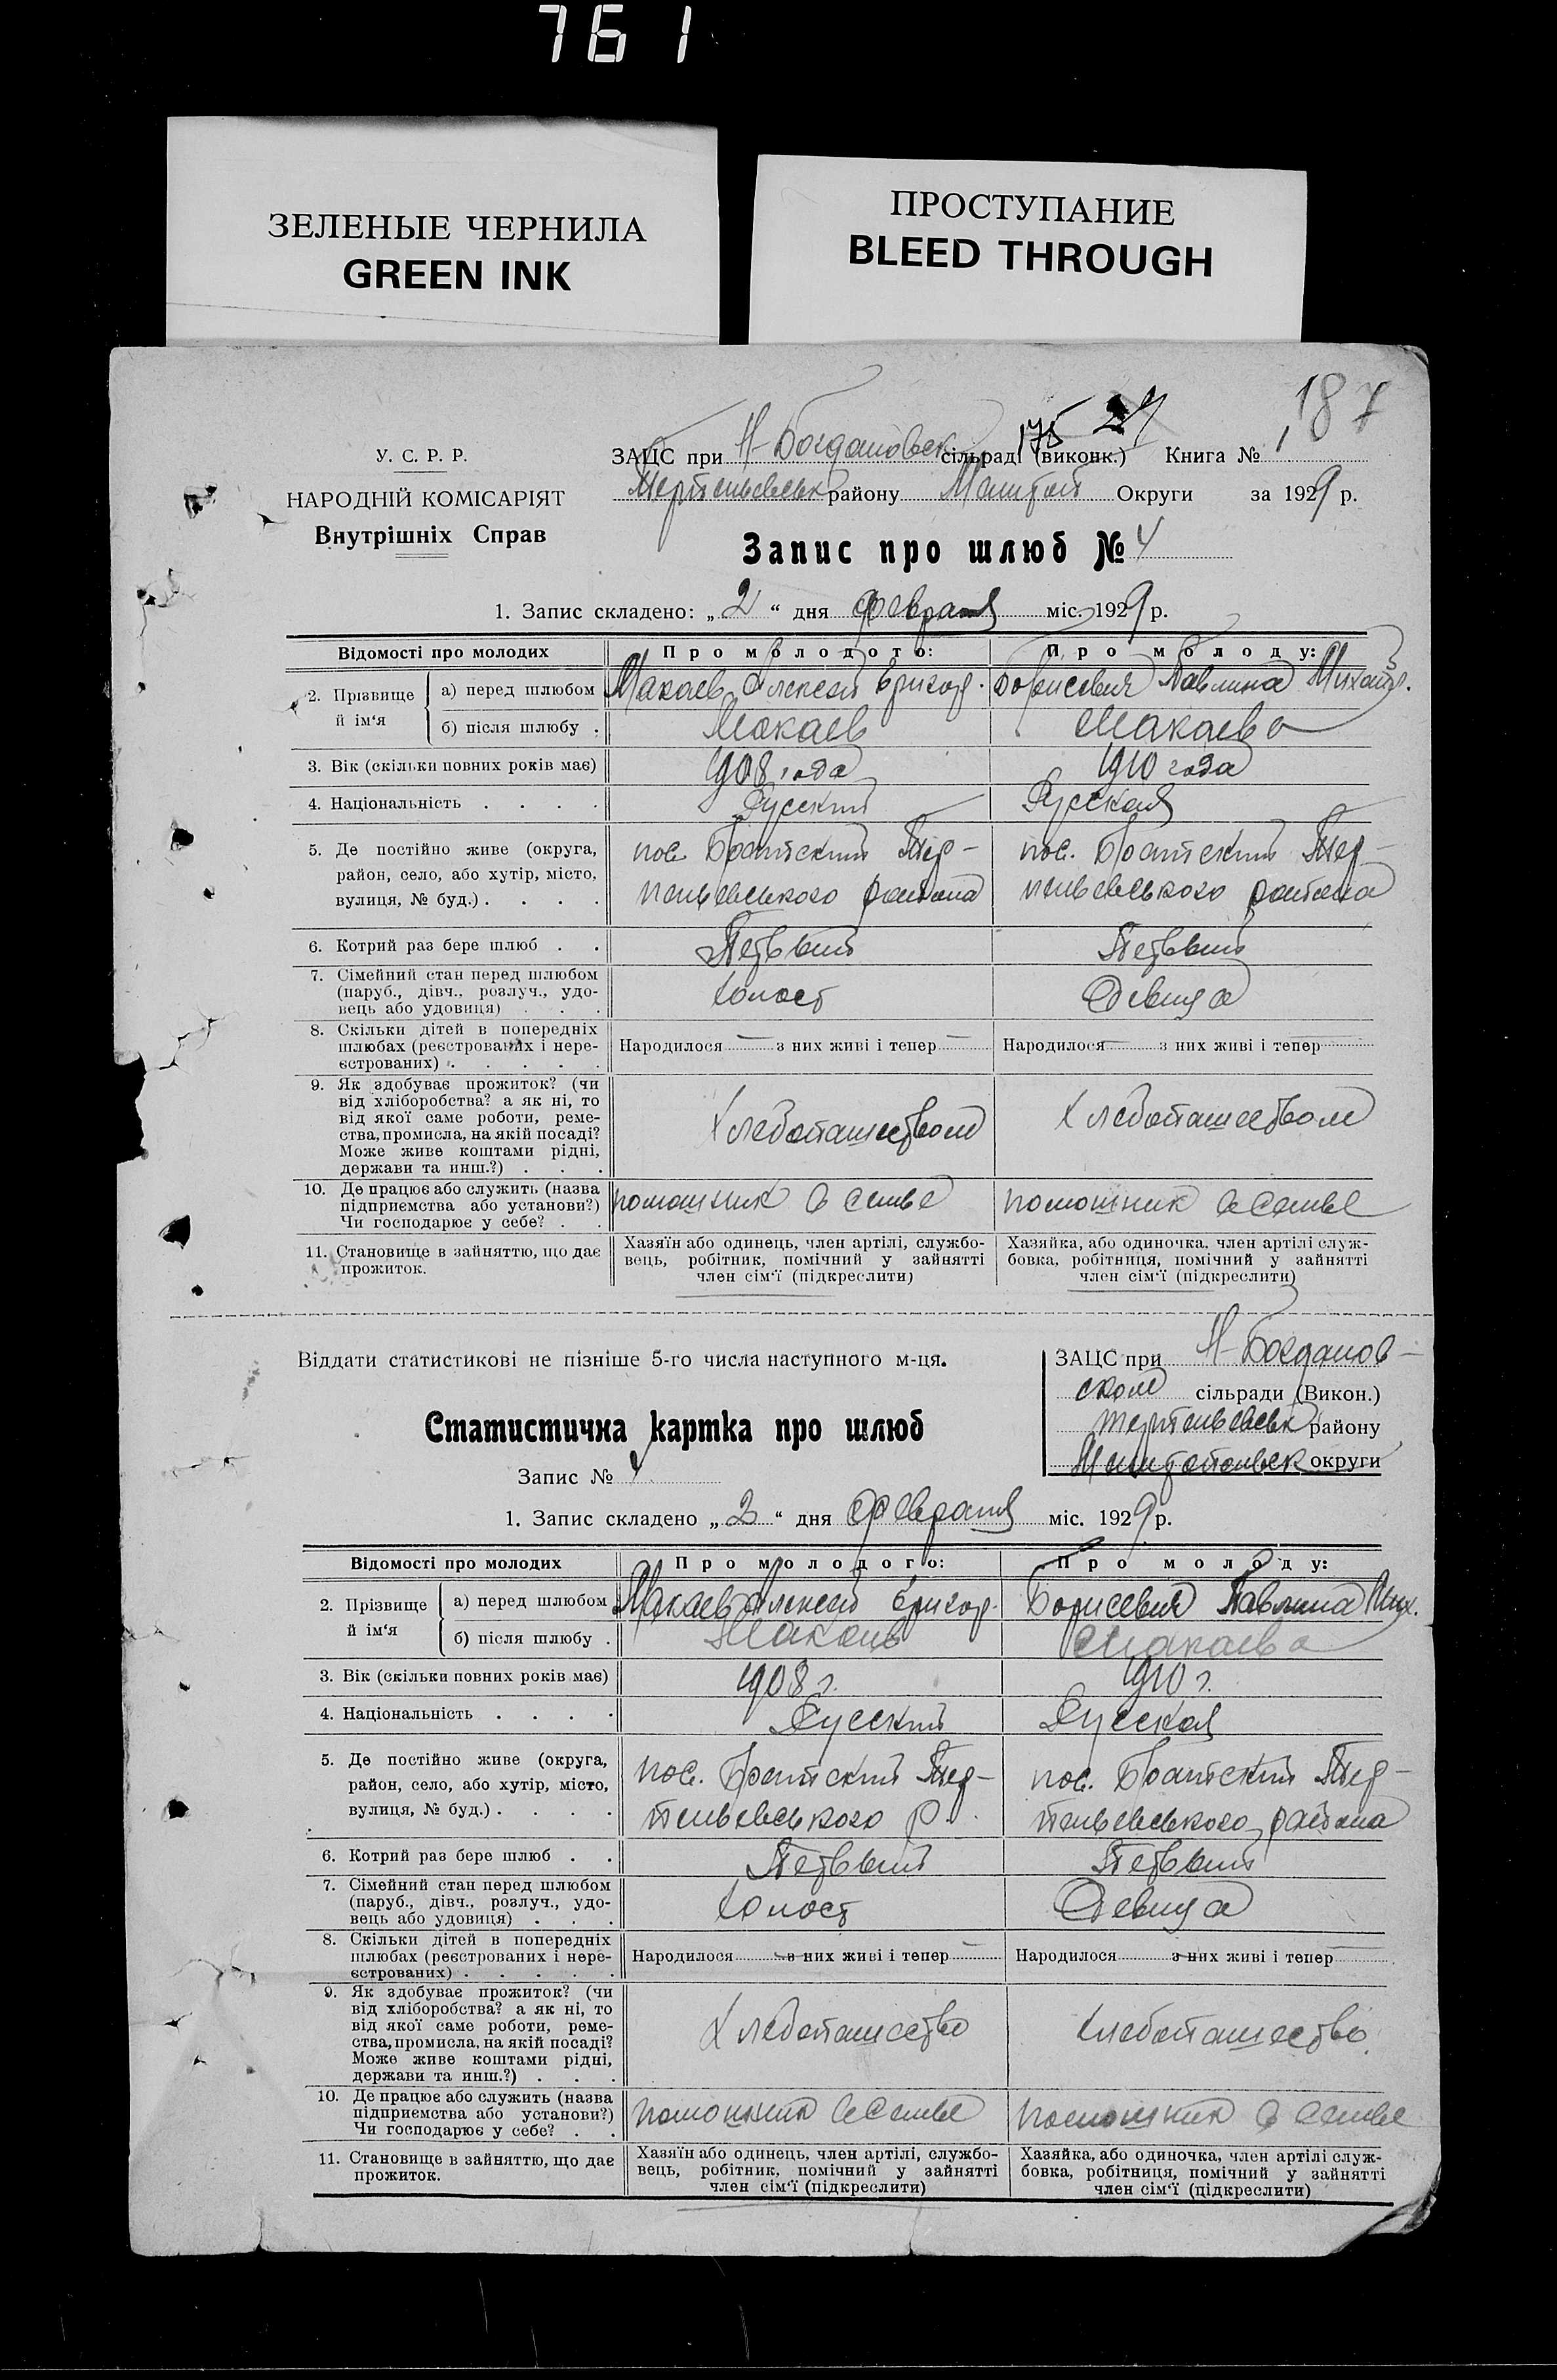 761
ЗЕЛЕНЫЕ ЧЕРНИЛА
GREEN INK
ПРОСТУПАНИЕ
BLEED THROUGH
187
175 24
У. С. Р. Р.
НАРОДНІЙ КОМІСАРІЯТ
Внутрішніх Справ
ЗАЦС при Н-Богдановск сільраді (виконк.) Книга № 1
Терпеньевськ району Мелитоп Округи за 1929 р.
Запис про шлюб № 4
1. Запис складено: „2“ дня февраля міс. 1929 р.
Відомості про молодих Про молодого: Про молоду:
2. Прізвище й ім‘я а) перед шлюбом Макаев Алексей Григор. Борисевич Павлина Михайл.
б) після шлюбу . Макаев Макаева
3. Вік (скільки повних років має) 1908 года 1910 года
4. Національність . . . . Русский Русская
5. Де постійно живе (округа, район, село, або хутір, місто, вулиця, № буд.) . . . . пос. Братский Тер-
пеньевського района пос. Братский Тер-
пеньевського района
6. Котрий раз бере шлюб . . Первый Первый
7. Сімейний стан перед шлюбом
(паруб., дівч., розлуч., удо-
вець або удовиця) . . . Холост Девица
8. Скільки дітей в попередніх
шлюбах (реєстрованих і нере-
єстрованих) . . . . . Народилося — з них живі і тепер — Народилося — з них живі і тепер —
9. Як здобуває прожиток? (чи
від хліборобства? а як ні, то
від якої саме роботи, реме-
ства, промисла, на якій посаді?
Може живе коштами рідні,
держави та инш.?) . . . Хлебопашеством Хлебопашеством
10. Де працює або служить (назва
підприємства або установи?)
Чи господарює у себе? . . помошник в семье помошник в семье
11. Становище в зайняттю, що дає
прожиток.
Хазяїн або одинець, член артілі, службо-
вець, робітник, помічний у зайнятті
член сім‘ї (підкреслити)
Хазяйка, або одиночка, член артілі служ-
бовка, робітниця, помічний у зайнятті
член сім‘ї (підкреслити)
Віддати статистикові не пізніше 5-го числа наступного м-ця.
ЗАЦС при Н-Богданов-
ском сільради (Викон.)
Терпеньевськ району
Мелитопольск округи
Статистична картка про шлюб
Запис № 4
1. Запис складено „2“ дня февраля міс. 1929 р.
Відомості про молодих Про молодого: Про молоду:
2. Прізвище й ім‘я а) перед шлюбом Макаев Алексей Григор. Борисевич Павлина Мих.
б) після шлюбу . Макаев Макаева
3. Вік (скільки повних років має) 1908 г. 1910 г.
4. Національність . . . . Русский Русская
5. Де постійно живе (округа,
район, село, або хутір, місто,
вулиця, № буд.) . . . .
пос. Братский Тер-
пеньевського р.
пос. Братский Тер-
пеньевського района
6. Котрий раз бере шлюб . . Первый Первый
7. Сімейний стан перед шлюбом
(паруб., дівч., розлуч., удо-
вець або удовиця) . . . Холост Девица
8. Скільки дітей в попередніх
шлюбах (реєстрованих і нере-
єстрованих) . . . . . Народилося з них живі і тепер — Народилося з них живі і тепер —
9. Як здобуває прожиток? (чи
від хліборобства? а як ні, то
від якої саме роботи, реме-
ства, промисла, на якій посаді?
Може живе коштами рідні,
держави та инш.?) . . . Хлебопашество Хлебопашество
10. Де працює або служить (назва
підприємства або установи?)
Чи господарює у себе? . . помошник в семье помошник в семье
11. Становище в зайняттю, що дає
прожиток.
Хазяїн або одинець, член артілі, службо-
вець, робітник, помічний у зайнятті
член сім‘ї (підкреслити)
Хазяйка, або одиночка, член артілі служ-
бовка, робітниця, помічний у зайнятті
член сім‘ї (підкреслити)